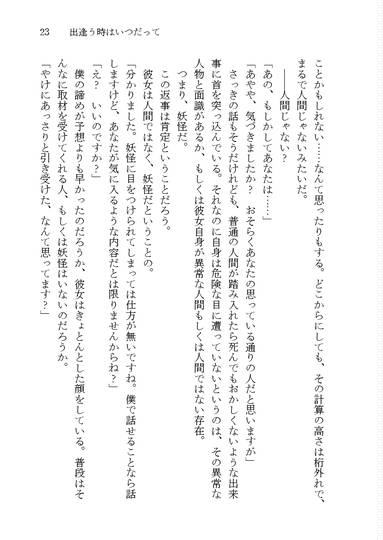 23　出逢う時はいつだって
ことかもしれない……なんて思ったりもする。どこからにしても、その計算の高さは桁外れで、
まるで人間じゃないみたいだ。
――人間じゃない？
「あの、もしかしてあなたは……」
「あやや、気づきましたか？　おそらくあなたの思っている通りの人だと思いますが」
さっきの話もそうだけれども、普通の人間が踏み入れたら死んでもおかしくないような出来
事に首を突っ込んでいる。それなのに自身は危険な目に遭っていないとなると、その異常な
人物と面識があるか、もしくは彼女自身が異常な人間もしくは人間ではない存在。
つまり、妖怪だ。
この返事は肯定ということだろう。
彼女は人間ではなく、妖怪だということの。
「分かりました。妖怪に目をつけられてしまっては仕方が無いですね。僕で話せることなら話
しますけど、あなたが気に入るような内容だとは限りませんからね？」
「え？　いいのですか？」
僕の諦めが予想よりも早かったのだろうか、彼女はきょとんとした顔をしている。普段はそ
んなに取材を受けてくれる人、もしくは妖怪はいないのだろうか。
「やけにあっさりと引き受けた、なんて思ってます？」